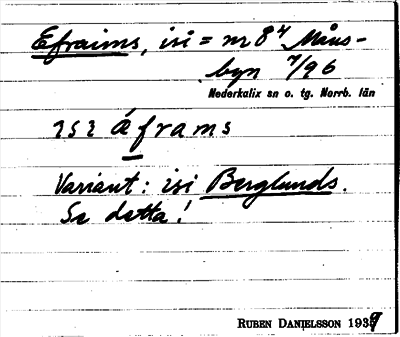 Efraims, isi = nr 8⁴ Måns-
byn 7/96
Nederkalix sn o. tg. Norrb. län
ısı áframs
Variant: isi Berglunds.
Se detta!
RUBEN DANIELSSON 1939